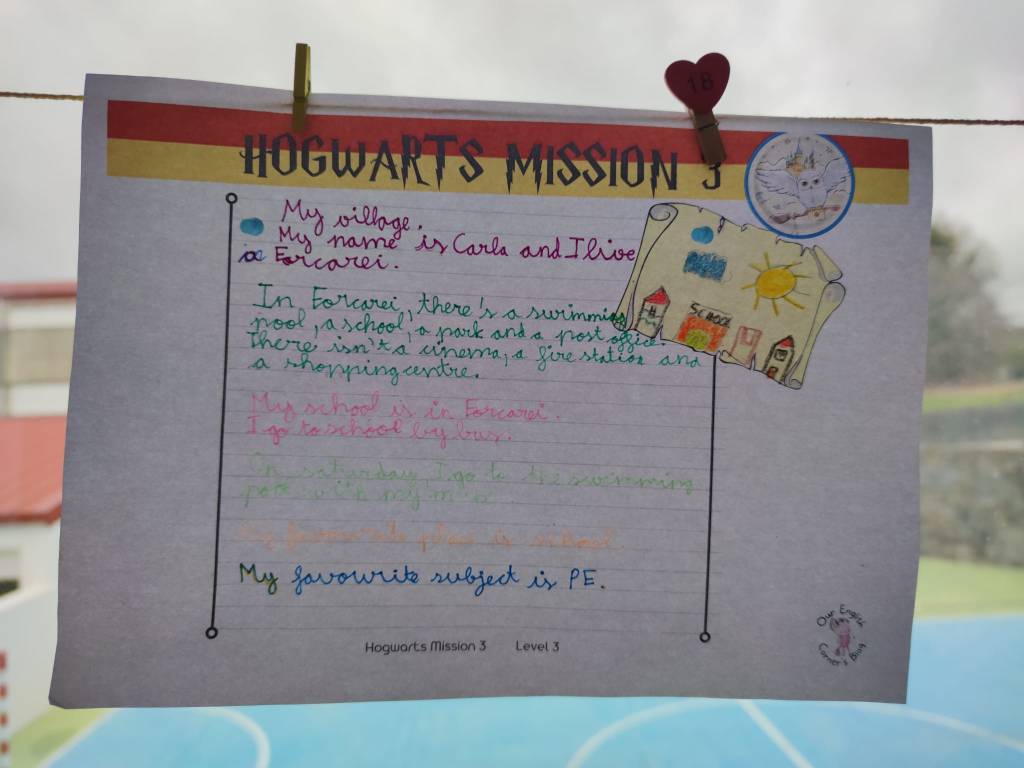 18
HOGWARTS MISSION 3
My village.
My name is Carla and I live
in Forcarei.
In Forcarei, there's a swimming
pool, a school, a park and a post office.
There isn't a cinema, a fire station and
a shopping centre.
My school is in Forcarei.
I go to school by bus.
On saturday, I go to the swimming
with my
My favourite place is school
My favourite subject is PE.
SCHOOL
Hogwarts Mission 3 Level 3
Our English
Corner's Blog